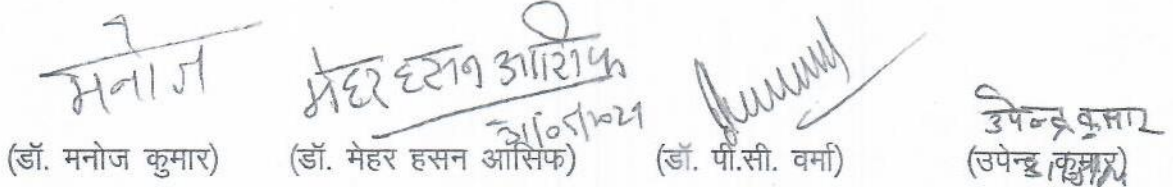 मनोज मेहर हसन आसिफ उपेन्द्र कुमार
(डॉ. मनोज कुमार) (डॉ. मेहर हसन आसिफ) (डॉ. पी.सी. वर्मा) (उपेन्द्र कुमार)